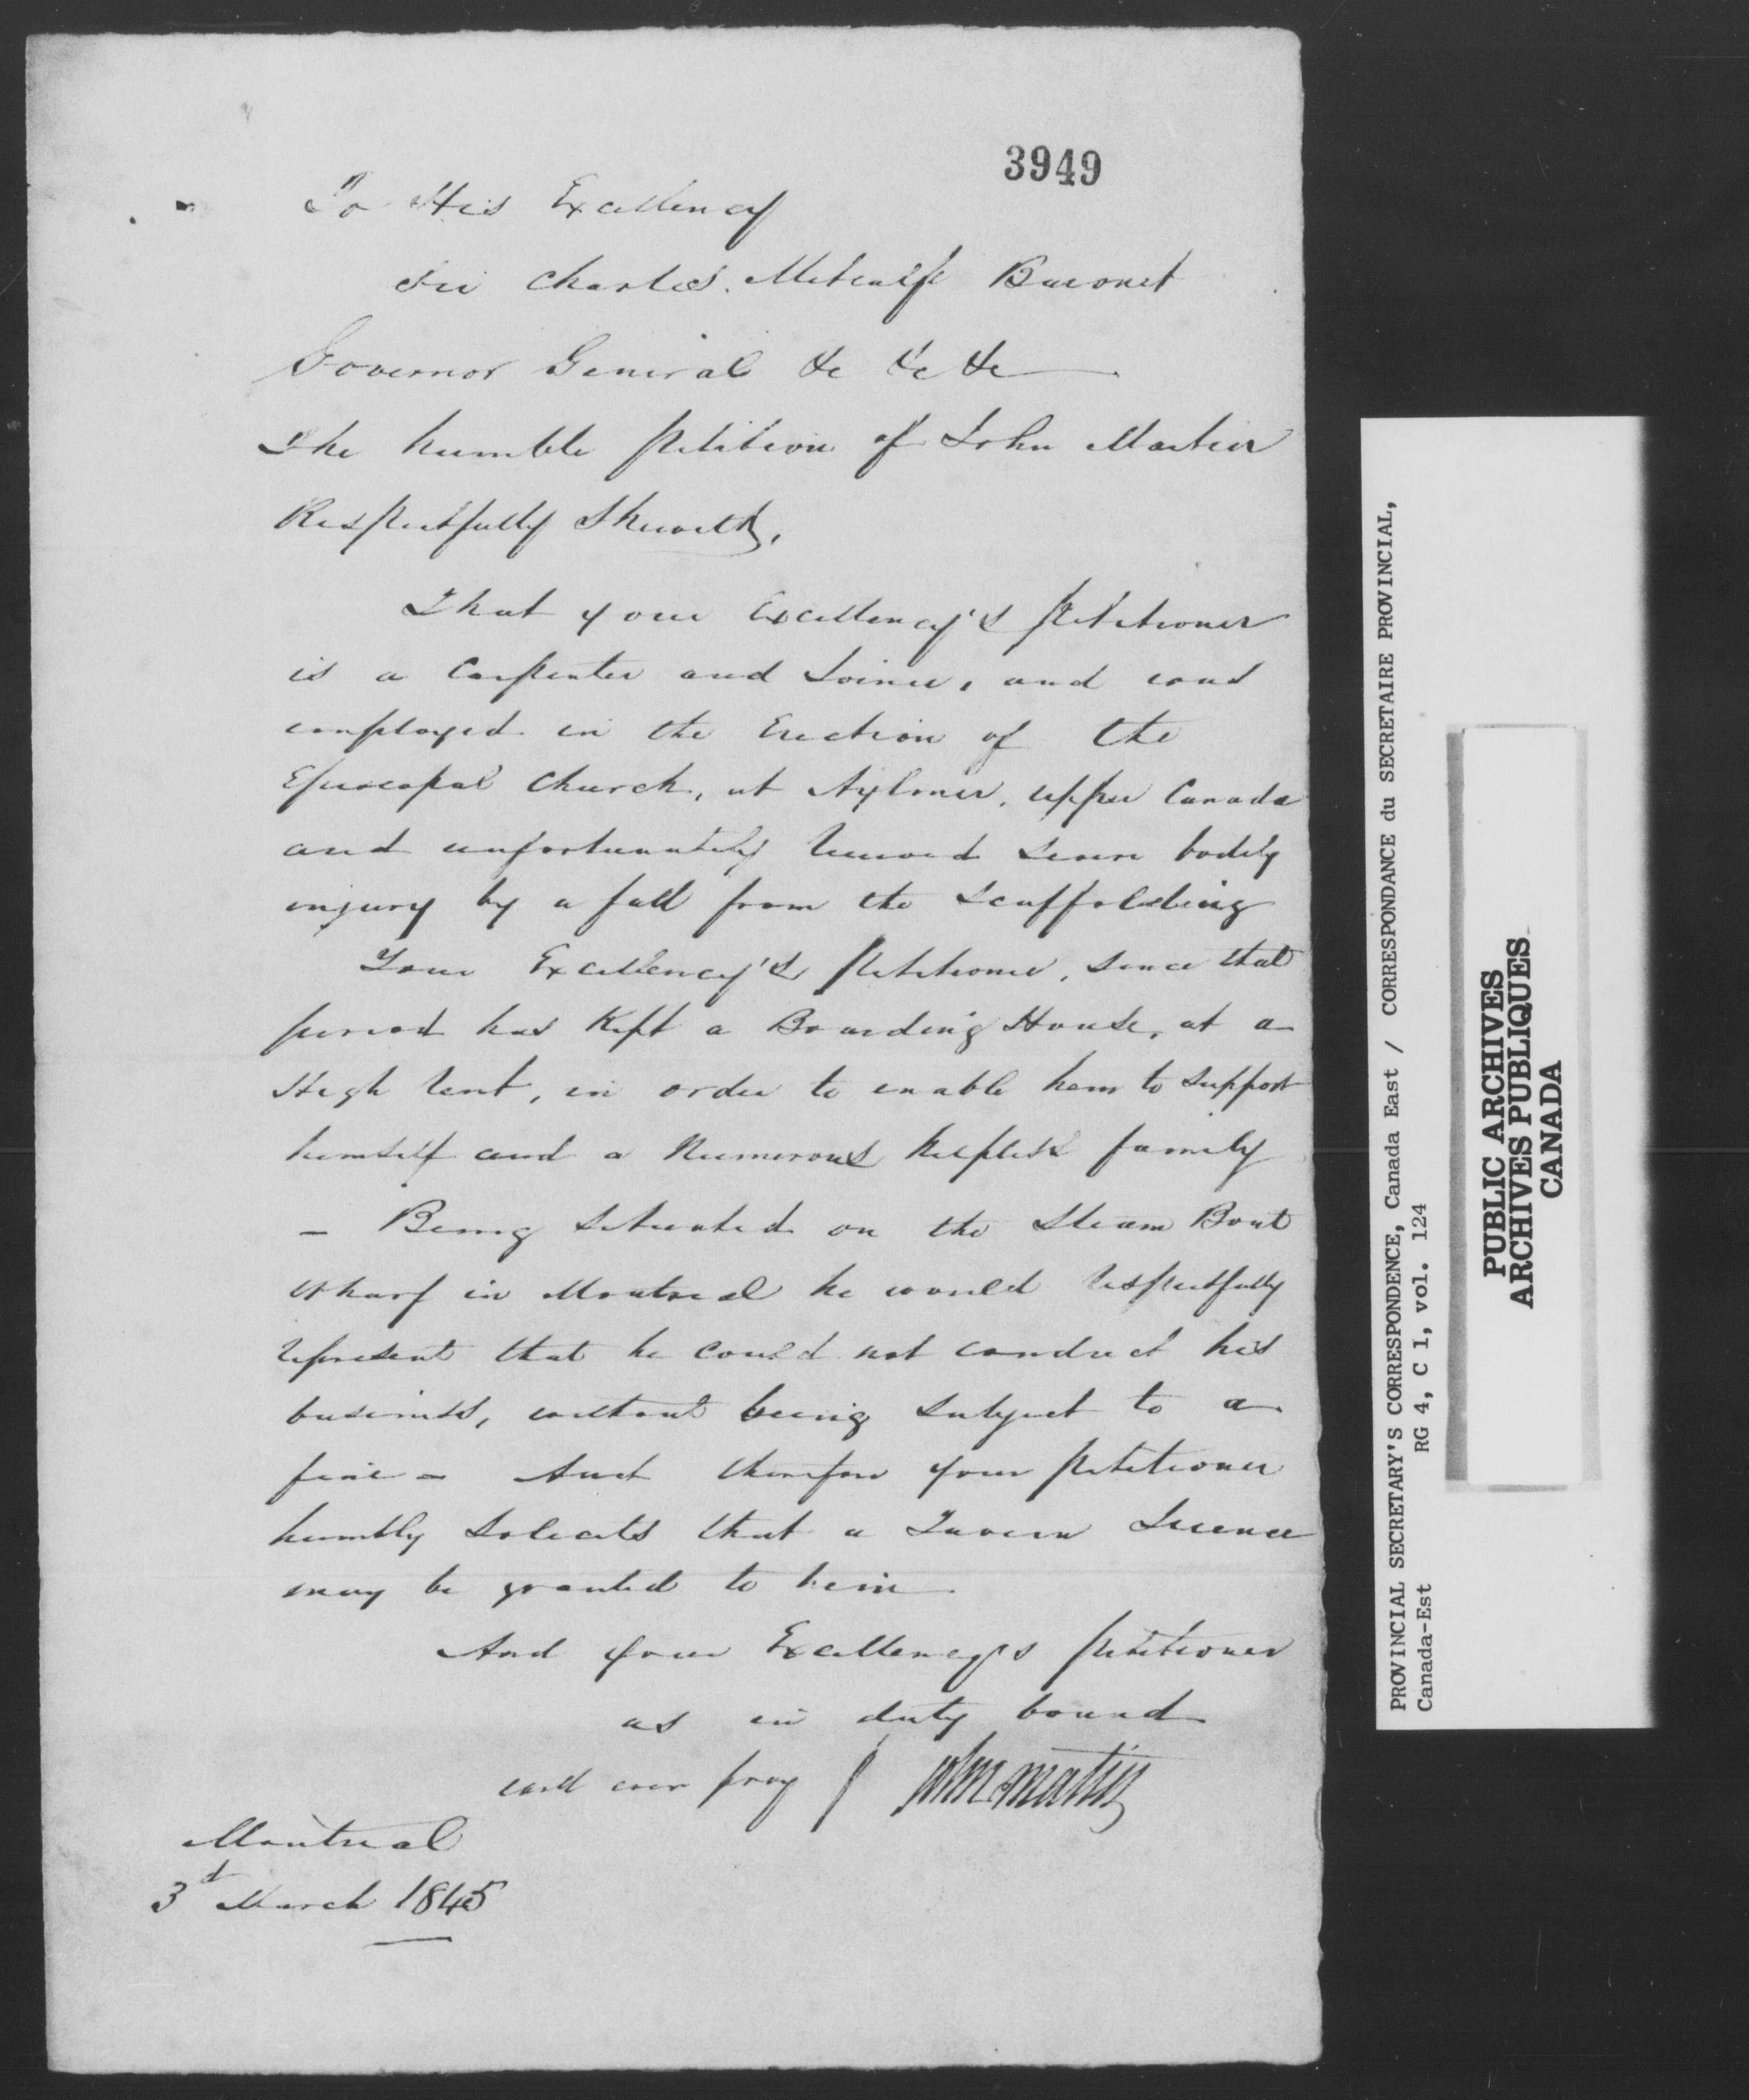 3949
To His Excellency
Sir Charles Metcalfe Baronet
Governor General &c &c &c
The humble petition of John Martin
Respectfully Sheweth,
That your Excellency's petitioner
is a Carpenter and Joiner, and was
employed in the Erection of the
Episcopal Church, at Aylmer, upper Canada
and unfortunately received severe bodily
injury by a fall from the Scaffolding
Your Excellency's petitioner, since that
period has Kept a Boarding House, at a
High rent, in order to enable him to support
himself and a Numerous helpless family
- Being Situated on the Steam Boat
Wharf in Montreal he would respectfully
represent that he could not conduct his
business, without being subject to a
fine - And therefore your petitioner
humbly Solicits that a Tavern Licence
may be granted to him
And your Excellency's petitioner
as in duty bound
will ever pray
John Martin
Montreal
3d March 1845
PROVINCIAL SECRETARY'S CORRESPONDENCE, Canada East / CORRESPONDANCE du SECRETAIRE PROVINCIAL,
Canada-Est RG 4, C 1, vol. 124
PUBLIC ARCHIVES
ARCHIVES PUBLIQUES
CANADA